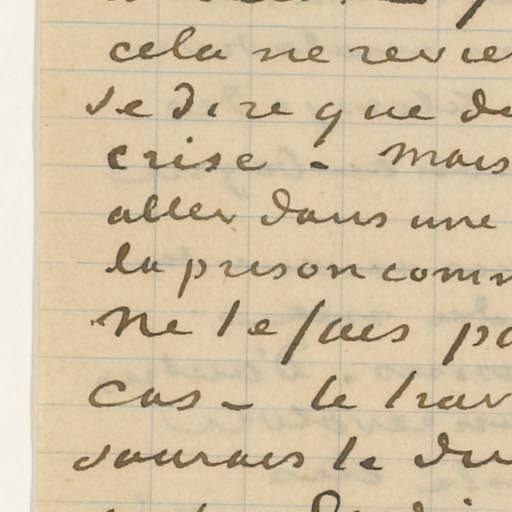 cela ne revie
se dire que de
crise - mais
aller dans une
la prison comm
ne le fais pa
cas - le trav
saurais le du